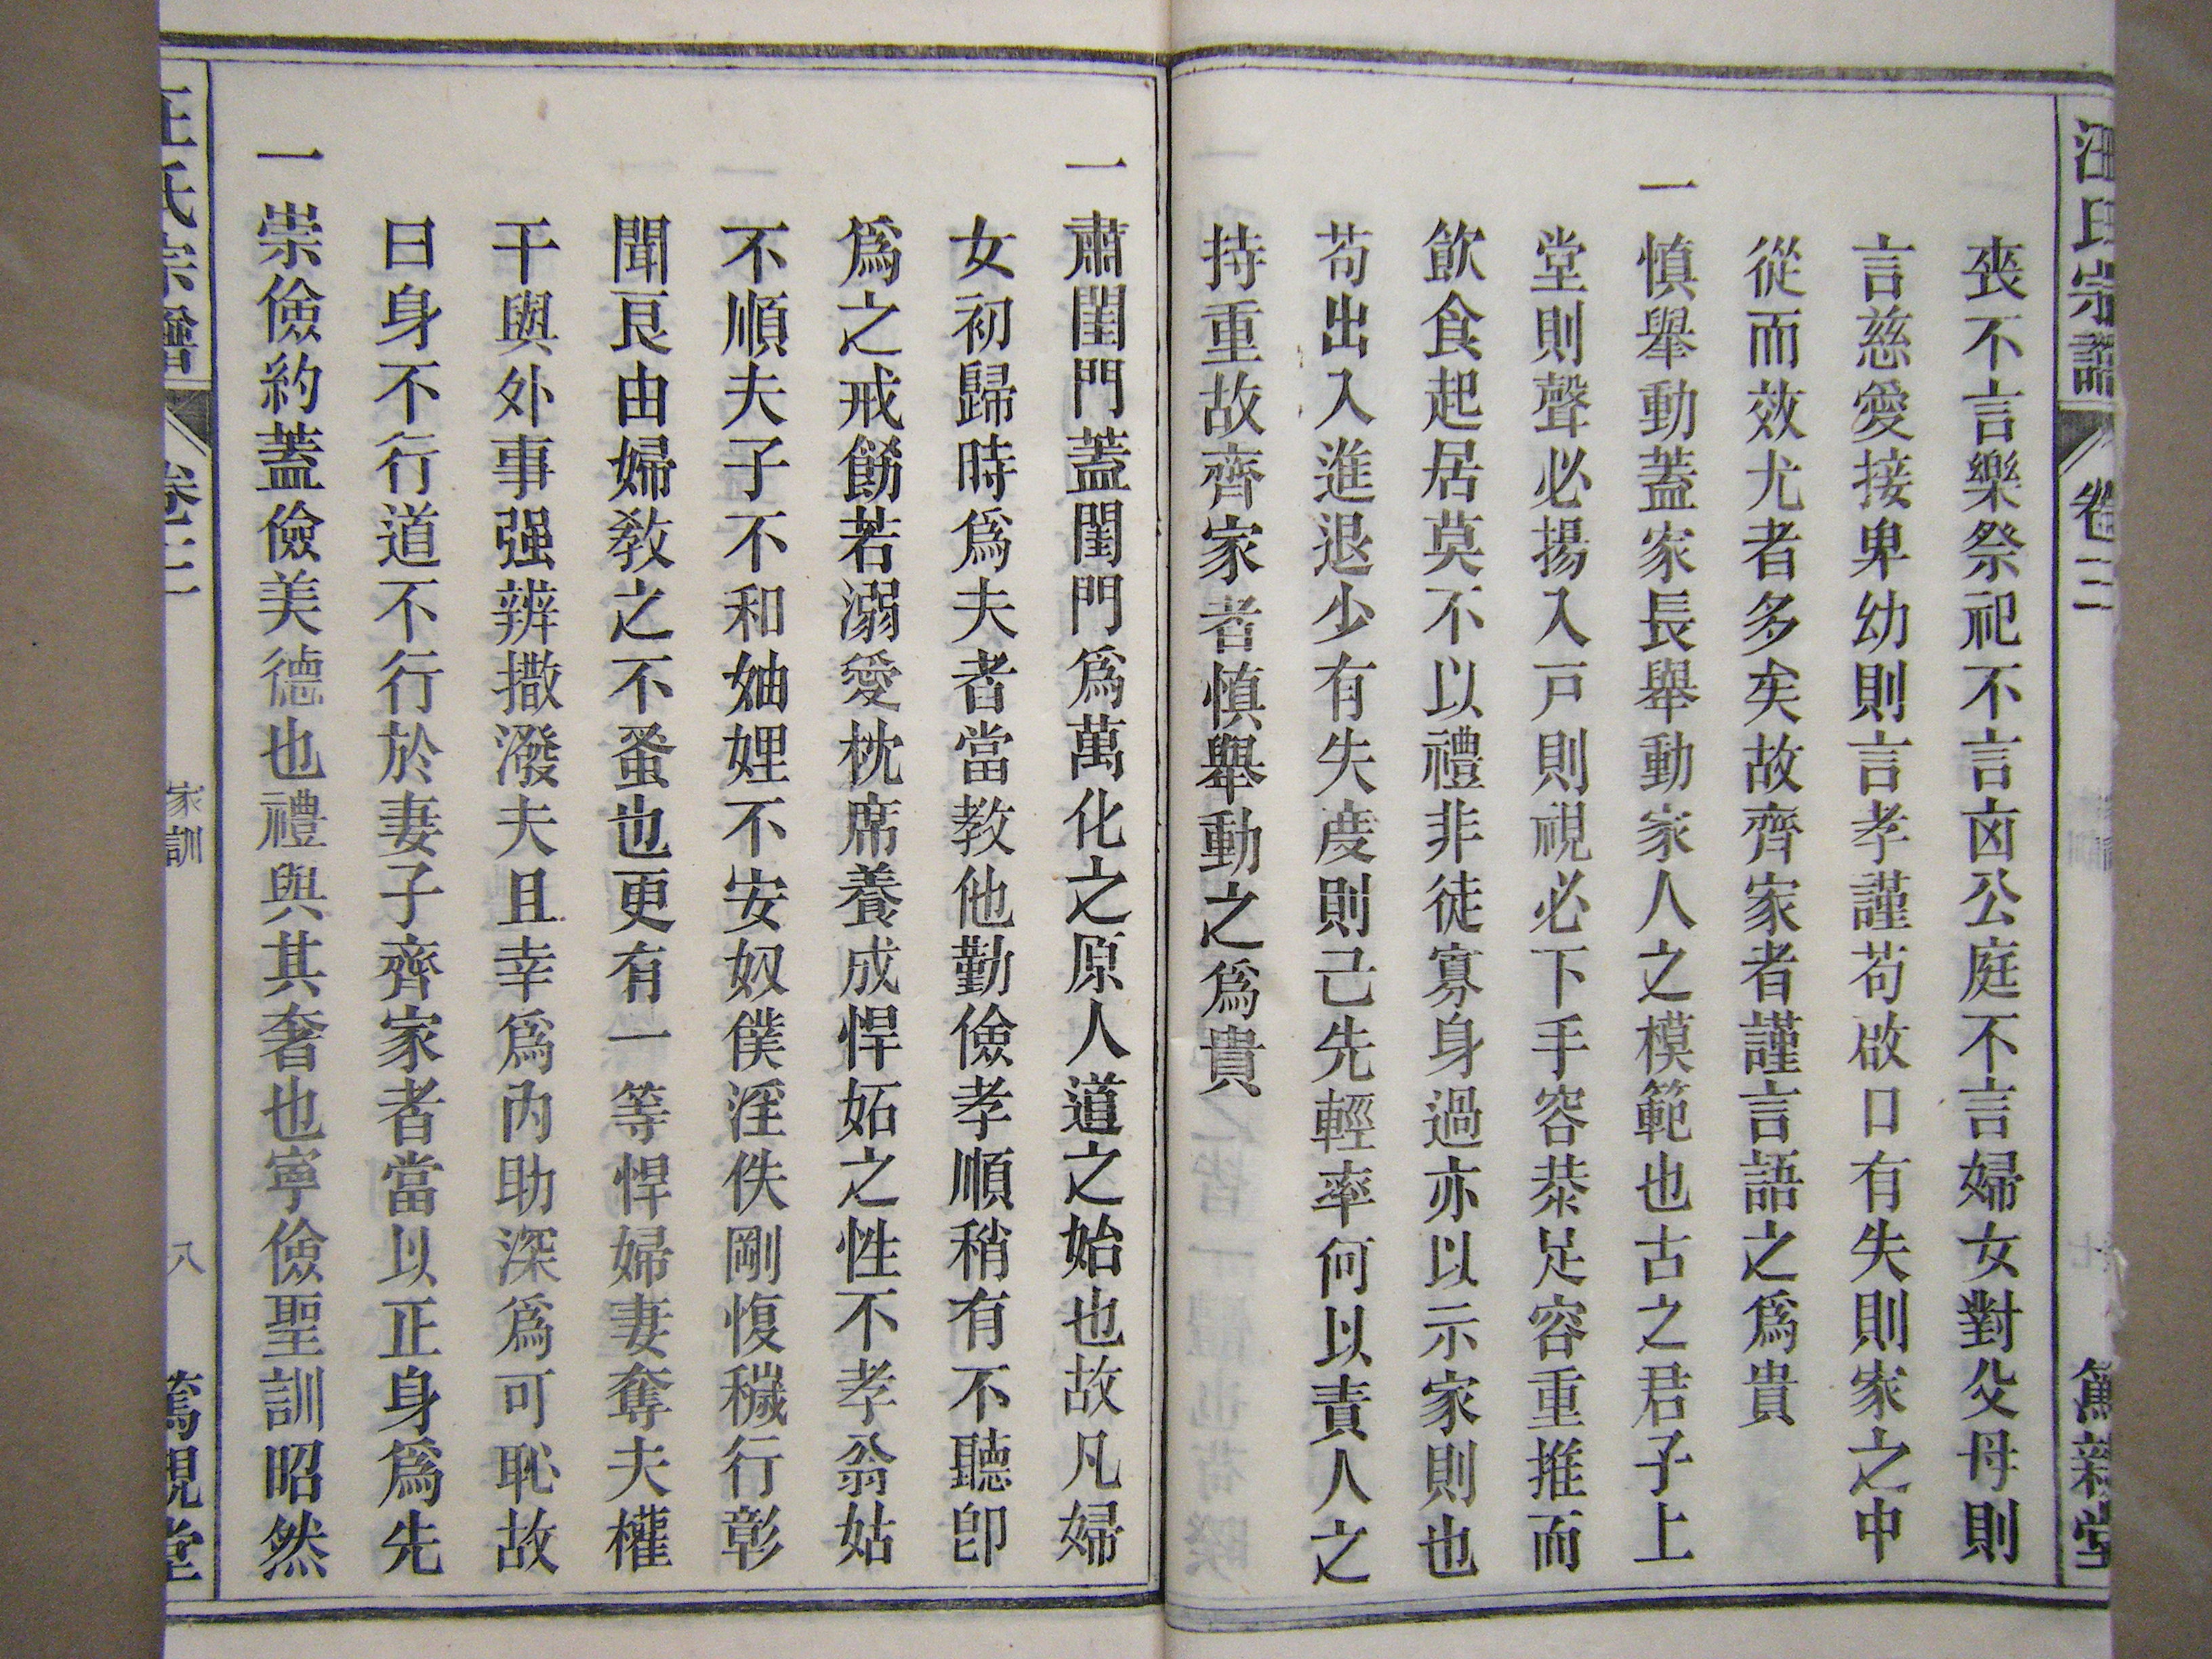 汪氏宗譜 卷三
喪不言樂祭祀不言凶公庭不言婦女對父母則
言慈愛接卑幼則言孝謹苟啟口有失則家之中
從而效尤者多矣故齊家者謹言語之爲貴
一慎舉動蓋家長舉動家人之模範也古之君子上
堂則聲必揚入戸則視必下手容恭足容重推而
飲食起居莫不以禮非徒寡身過亦以示家則也
苟出入進退少有失度則己先輕率何以責人之
持重故齊家者慎舉動之爲貴
一肅閨門蓋閨門爲萬化之原人道之始也故凡婦
女初歸時爲夫者當教他勤儉孝順稍有不聽卽
爲之戒飭若溺愛枕席養成悍妬之性不孝翁姑
不順夫子不和妯娌不安奴僕淫佚剛愎穢行彰
聞良由婦教之不蚤也更有一等悍婦妻奪夫權
干與外事强辨撒潑夫且幸爲內助深爲可恥故
曰身不行道不行於妻子齊家者當以正身爲先
一崇儉約蓋儉美德也禮與其奢也寧儉聖訓昭然
汪氏宗譜 卷三 家訓 八 篤親堂